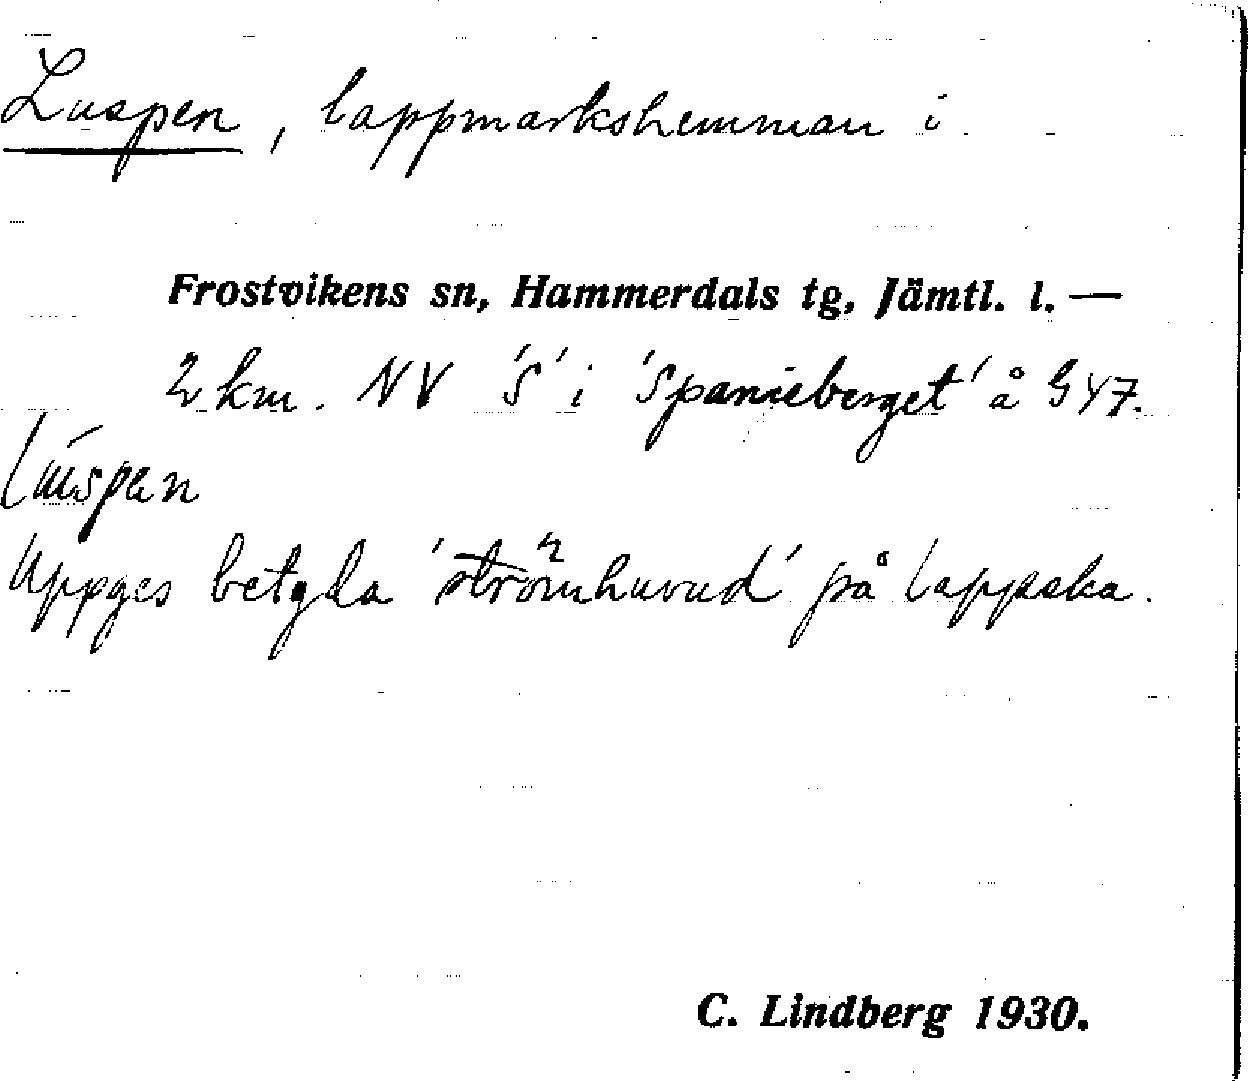 Luspen, lappmarkshemman i
Frostvikens sn, Hammerdals tg, Jämtl. l. —
2 km. NV 'S' i 'Spanieberget' å G47.
Luspen
Uppges betyda 'strömhuvud' på lappska.
C. Lindberg 1930.